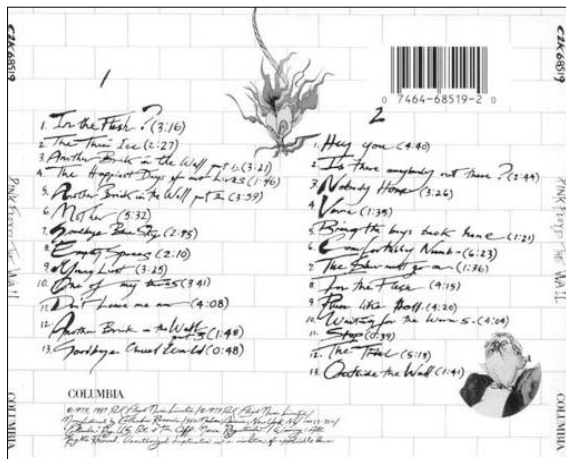 C2K 68519
PINK FLOYD THE WALL
COLUMBIA
1
1. In the Flesh? (3:16)
2. The Thin Ice (2:27)
3. Another Brick in the Wall part 1 (3:21)
4. The Happiest Days of our Lives (1:46)
5. Another Brick in the Wall part 2 (3:59)
6. Mother (5:32)
7. Goodbye Blue Sky (2:45)
8. Empty Spaces (2:10)
9. Young Lust (3:25)
10. One of my turns (3:41)
11. Don't Leave me now (4:08)
12. Another Brick in the Wall
part 3 (1:48)
13. Goodbye Cruel World (0:48)
COLUMBIA
0 7464-68519-2 0
2
1. Hey you (4:40)
2. Is there anybody out there? (2:44)
3. Nobody Home (3:26)
4. Vera (1:35)
5. Bring the boys back home (1:21)
6. Comfortably Numb (6:23)
7. The Show must go on (1:36)
8. In the Flesh (4:15)
9. Run like Hell (4:20)
10. Waiting for the Worms (4:04)
11. Stop (0:30)
12. The Trial (5:13)
13. Outside the Wall (1:41)
C2K 68519
PINK FLOYD THE WALL
COLUMBIA